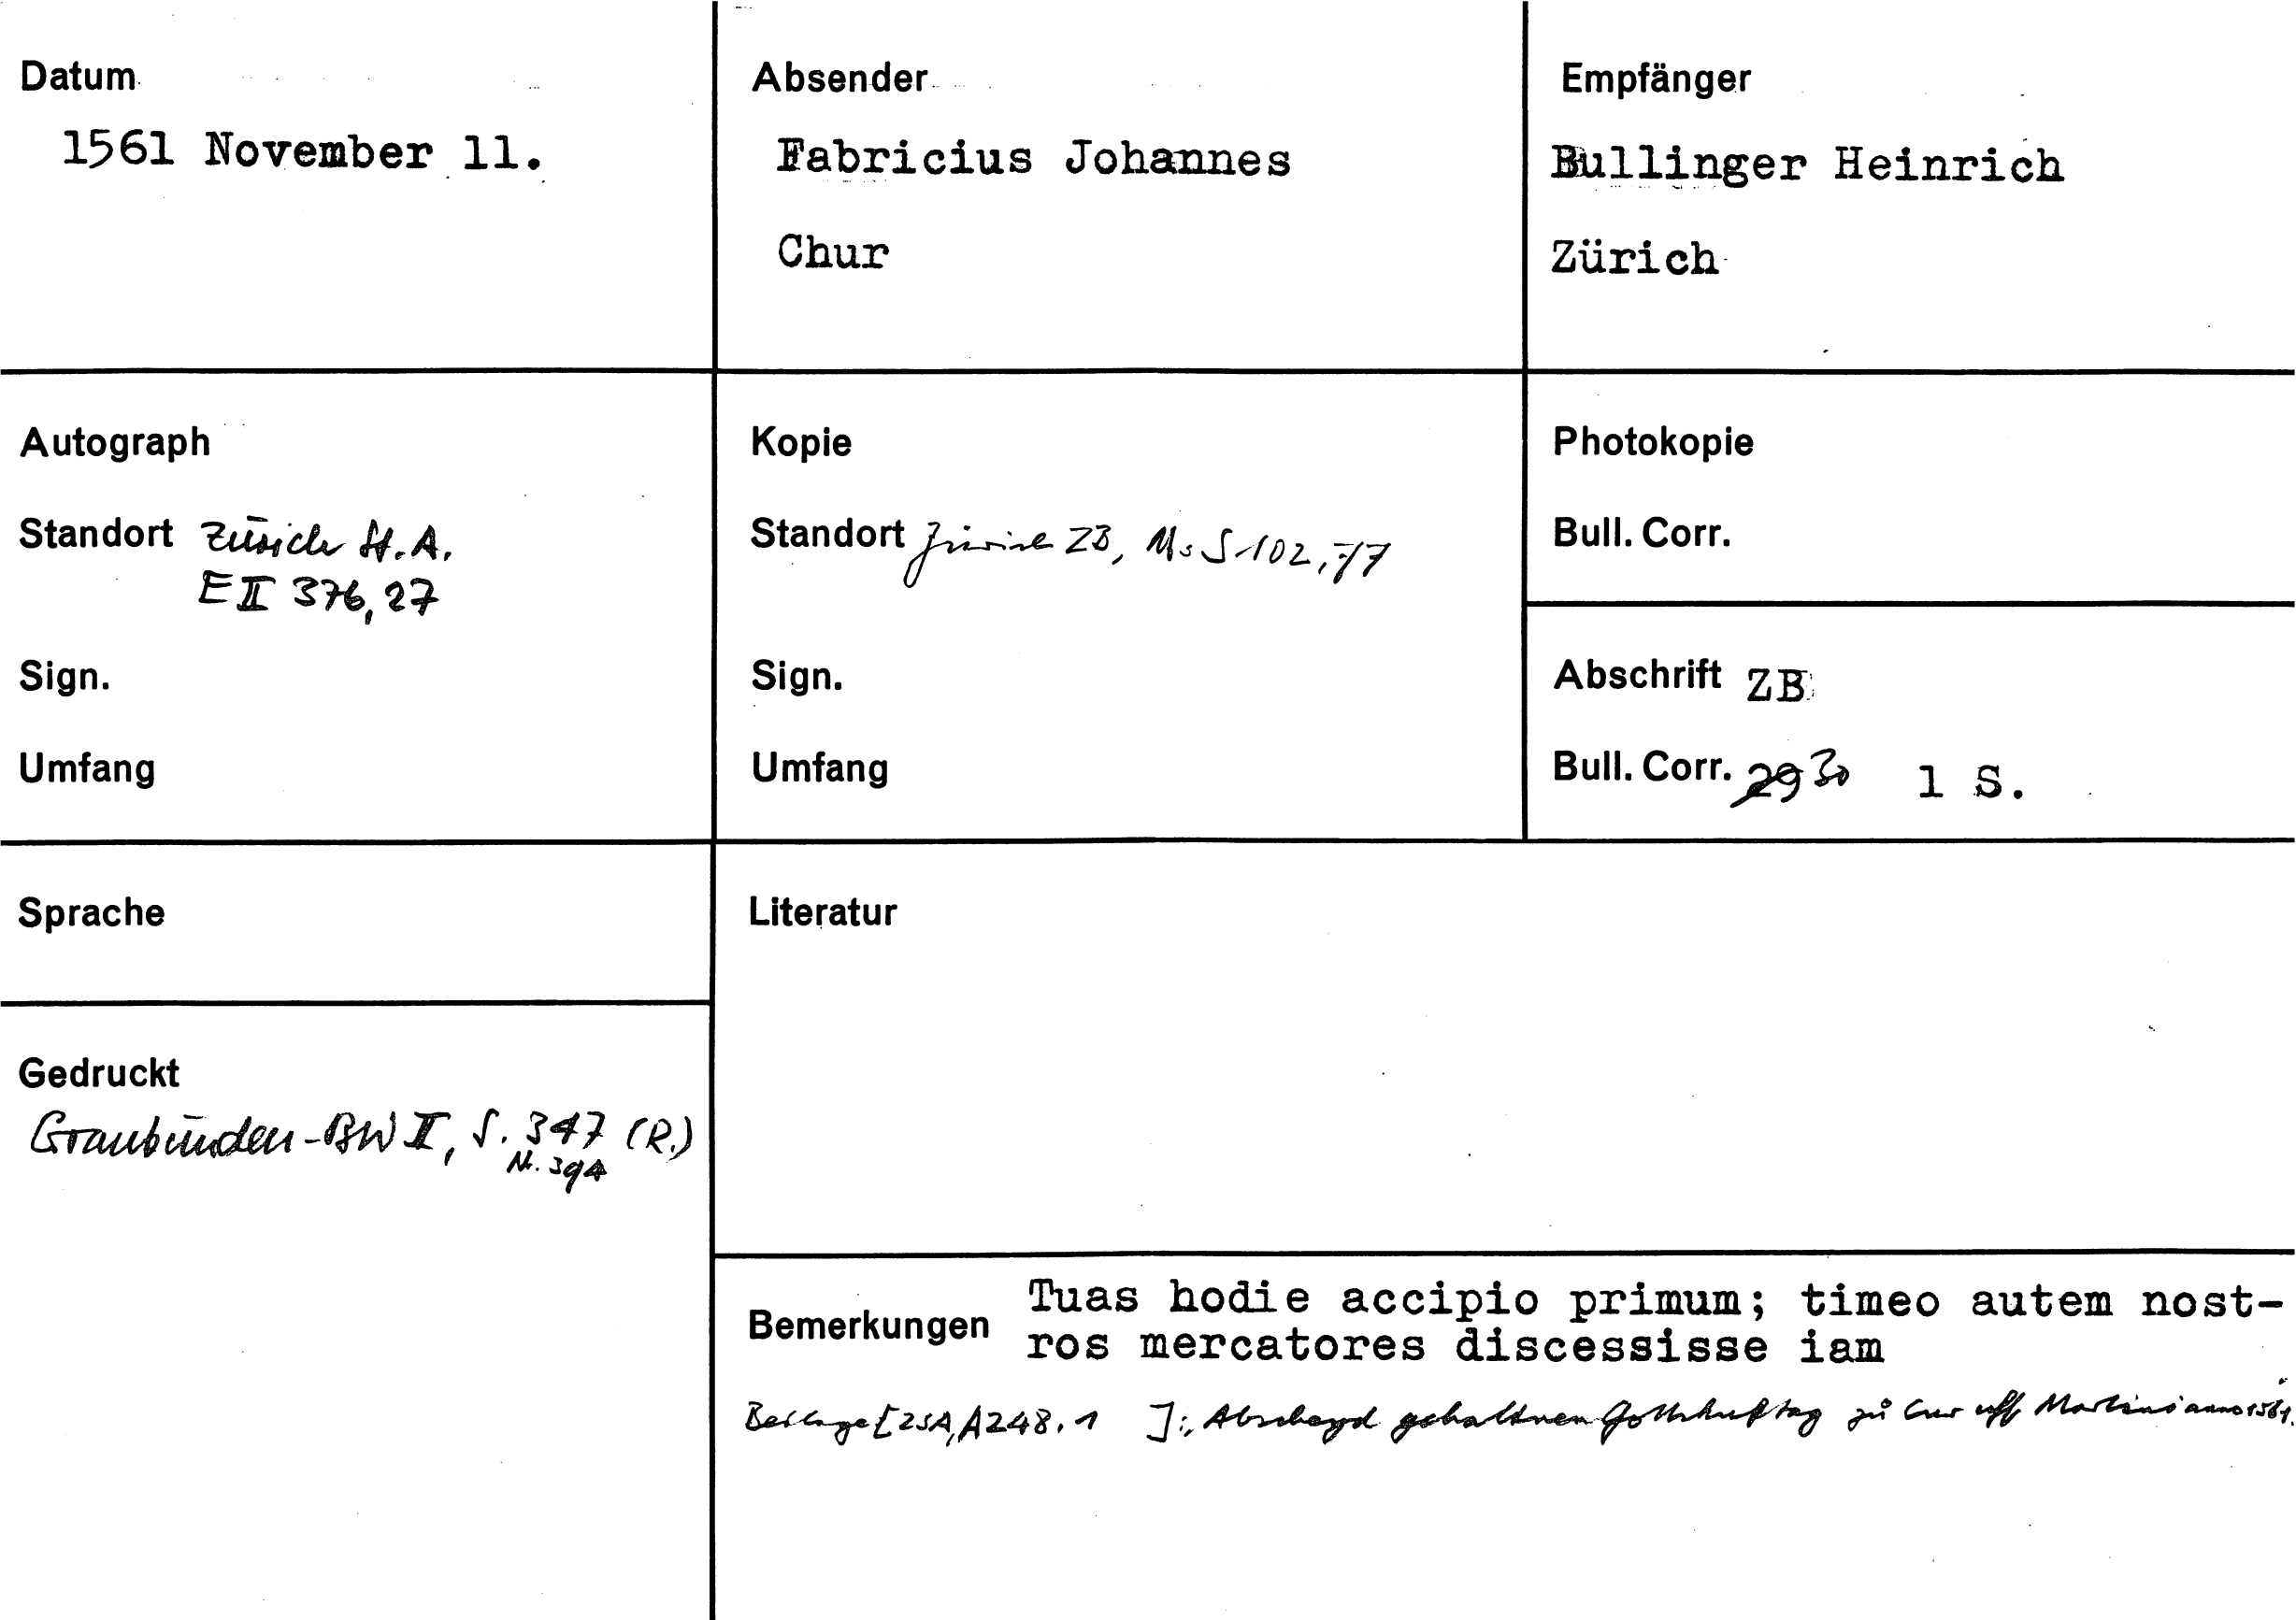 Datum
1561 November 11.
Absender
Fabricius Johannes
Chur
Empfänger
Bullinger Heinrich
Zürich
Autograph
Standort Zürich St.A.
E II 376,27
Sign.
Umfang
Kopie
Standort Zürich ZB, Ms S 102,77
Sign.
Umfang
Photokopie
Bull. Corr.
Abschrift ZB
Bull. Corr. 29 30 1 S.
Sprache
Gedruckt
Graubünden-BW II, S. 347 (R.)
Nr. 394
Literatur
Bemerkungen Tuas hodie accipio primum; timeo autem nost-
ros mercatores discessisse iam
Beilage [ZSA, A 248. 1 ]: Abscheyd gehaltnen zů Cur uff Martini anno 1561.